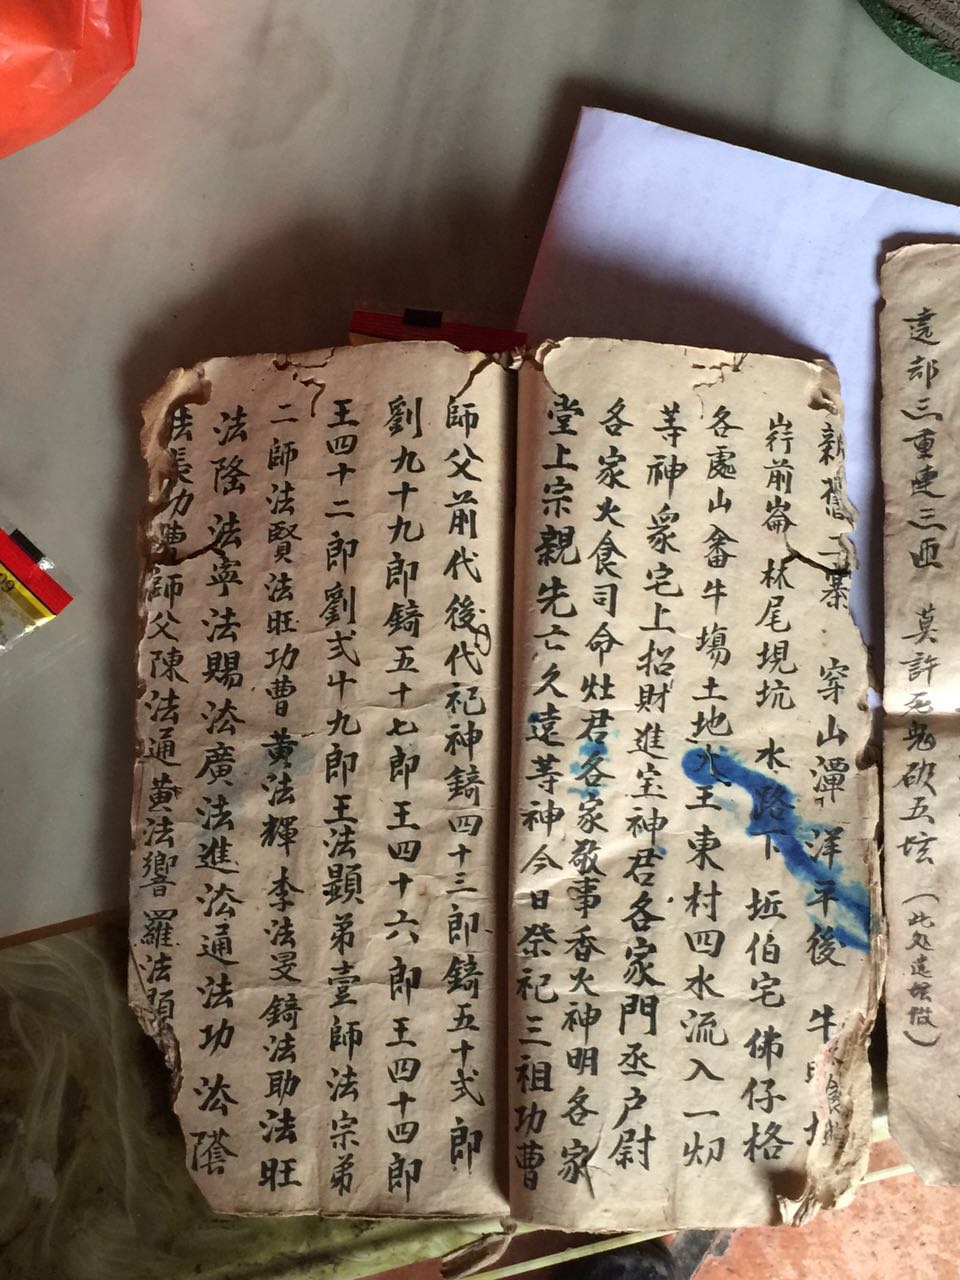 遠部三重連三匝 莫許死鬼砍五坛
新舊二寨 穿山潭 洋平後 牛
前崙 林尾垷坑 水路下 坵伯宅 佛仔格
各處山畬牛塲土地水王東村四水流入一切
等神衆宅上招財進宝神君各家門丞户尉
各家火食司命灶君各家敬事香火神明各家
堂上宗親先亡久遠等神今日祭祀三祖功曹
師父前代後代祀神錡四十三郎錡五十弍郎
劉九十九郎錡五十七郎王四十六郎王四十四郎
王四十二郎劉弍十九郎王法顕弟壹師法宗弟
二師法賢法旺功曹黄法輝 李法旻錡法助法旺
法隂 法寜法賜法廣法進法通法功 法
法張功曹師父陳法通黄法響羅法顕